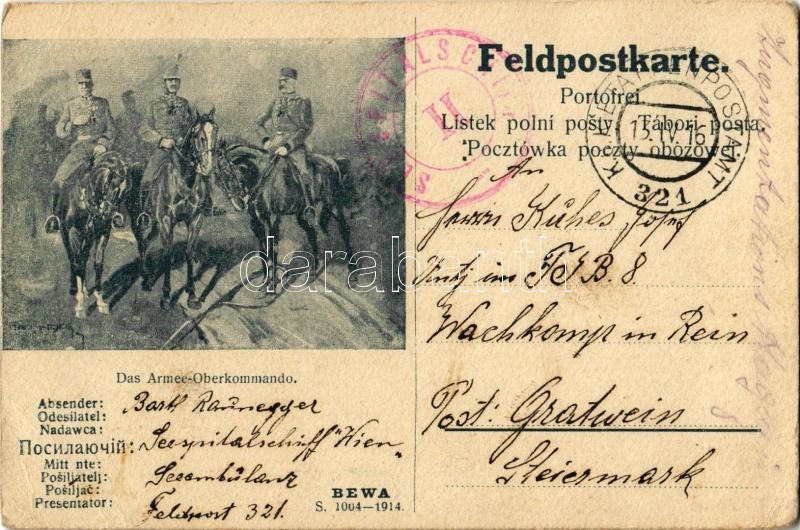 Feldpostkarte.
Portofrei.
Listek polní pošty. Tábori posta.
Pocztówka poczty obozowej.
K.U.K. ETAPPENPOSTAMT
321
SPITALSCHIFF
II
An
Herrn Kühes Josef
im FJB. 8
Wachkomp in Rein
Post: Gratwein
Steiermark
darabanth
Das Armee-Oberkommando.
Absender:
Odesilatel:
Nadawca:
Посилаючій:
Mitt nte:
Pošiljatelj:
Pošiljač:
Presentator:
Barth Raunegger
Seespitalschiff "Wien"
Seeambulanz
Feldpost 321.
BEWA
S. 1004—1914.